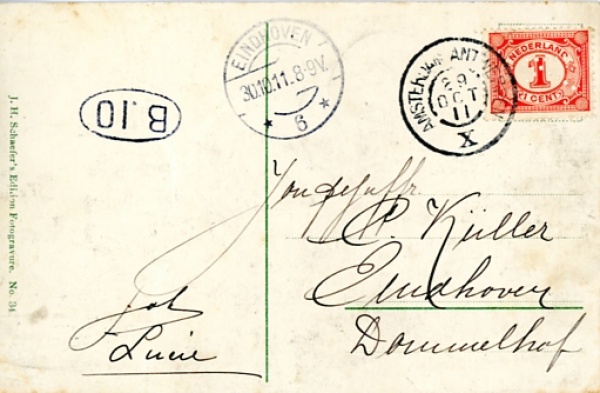 J. H. Schaefer's Edition Fotogravure. No. 34
B.10
EINDHOVEN
30.10.11.8-9V.
* 6 *
29
OCT
11
X
NEDERLAND
1
1 CENT
C. Küller
Eindhoven
Dommelhof
Lucie